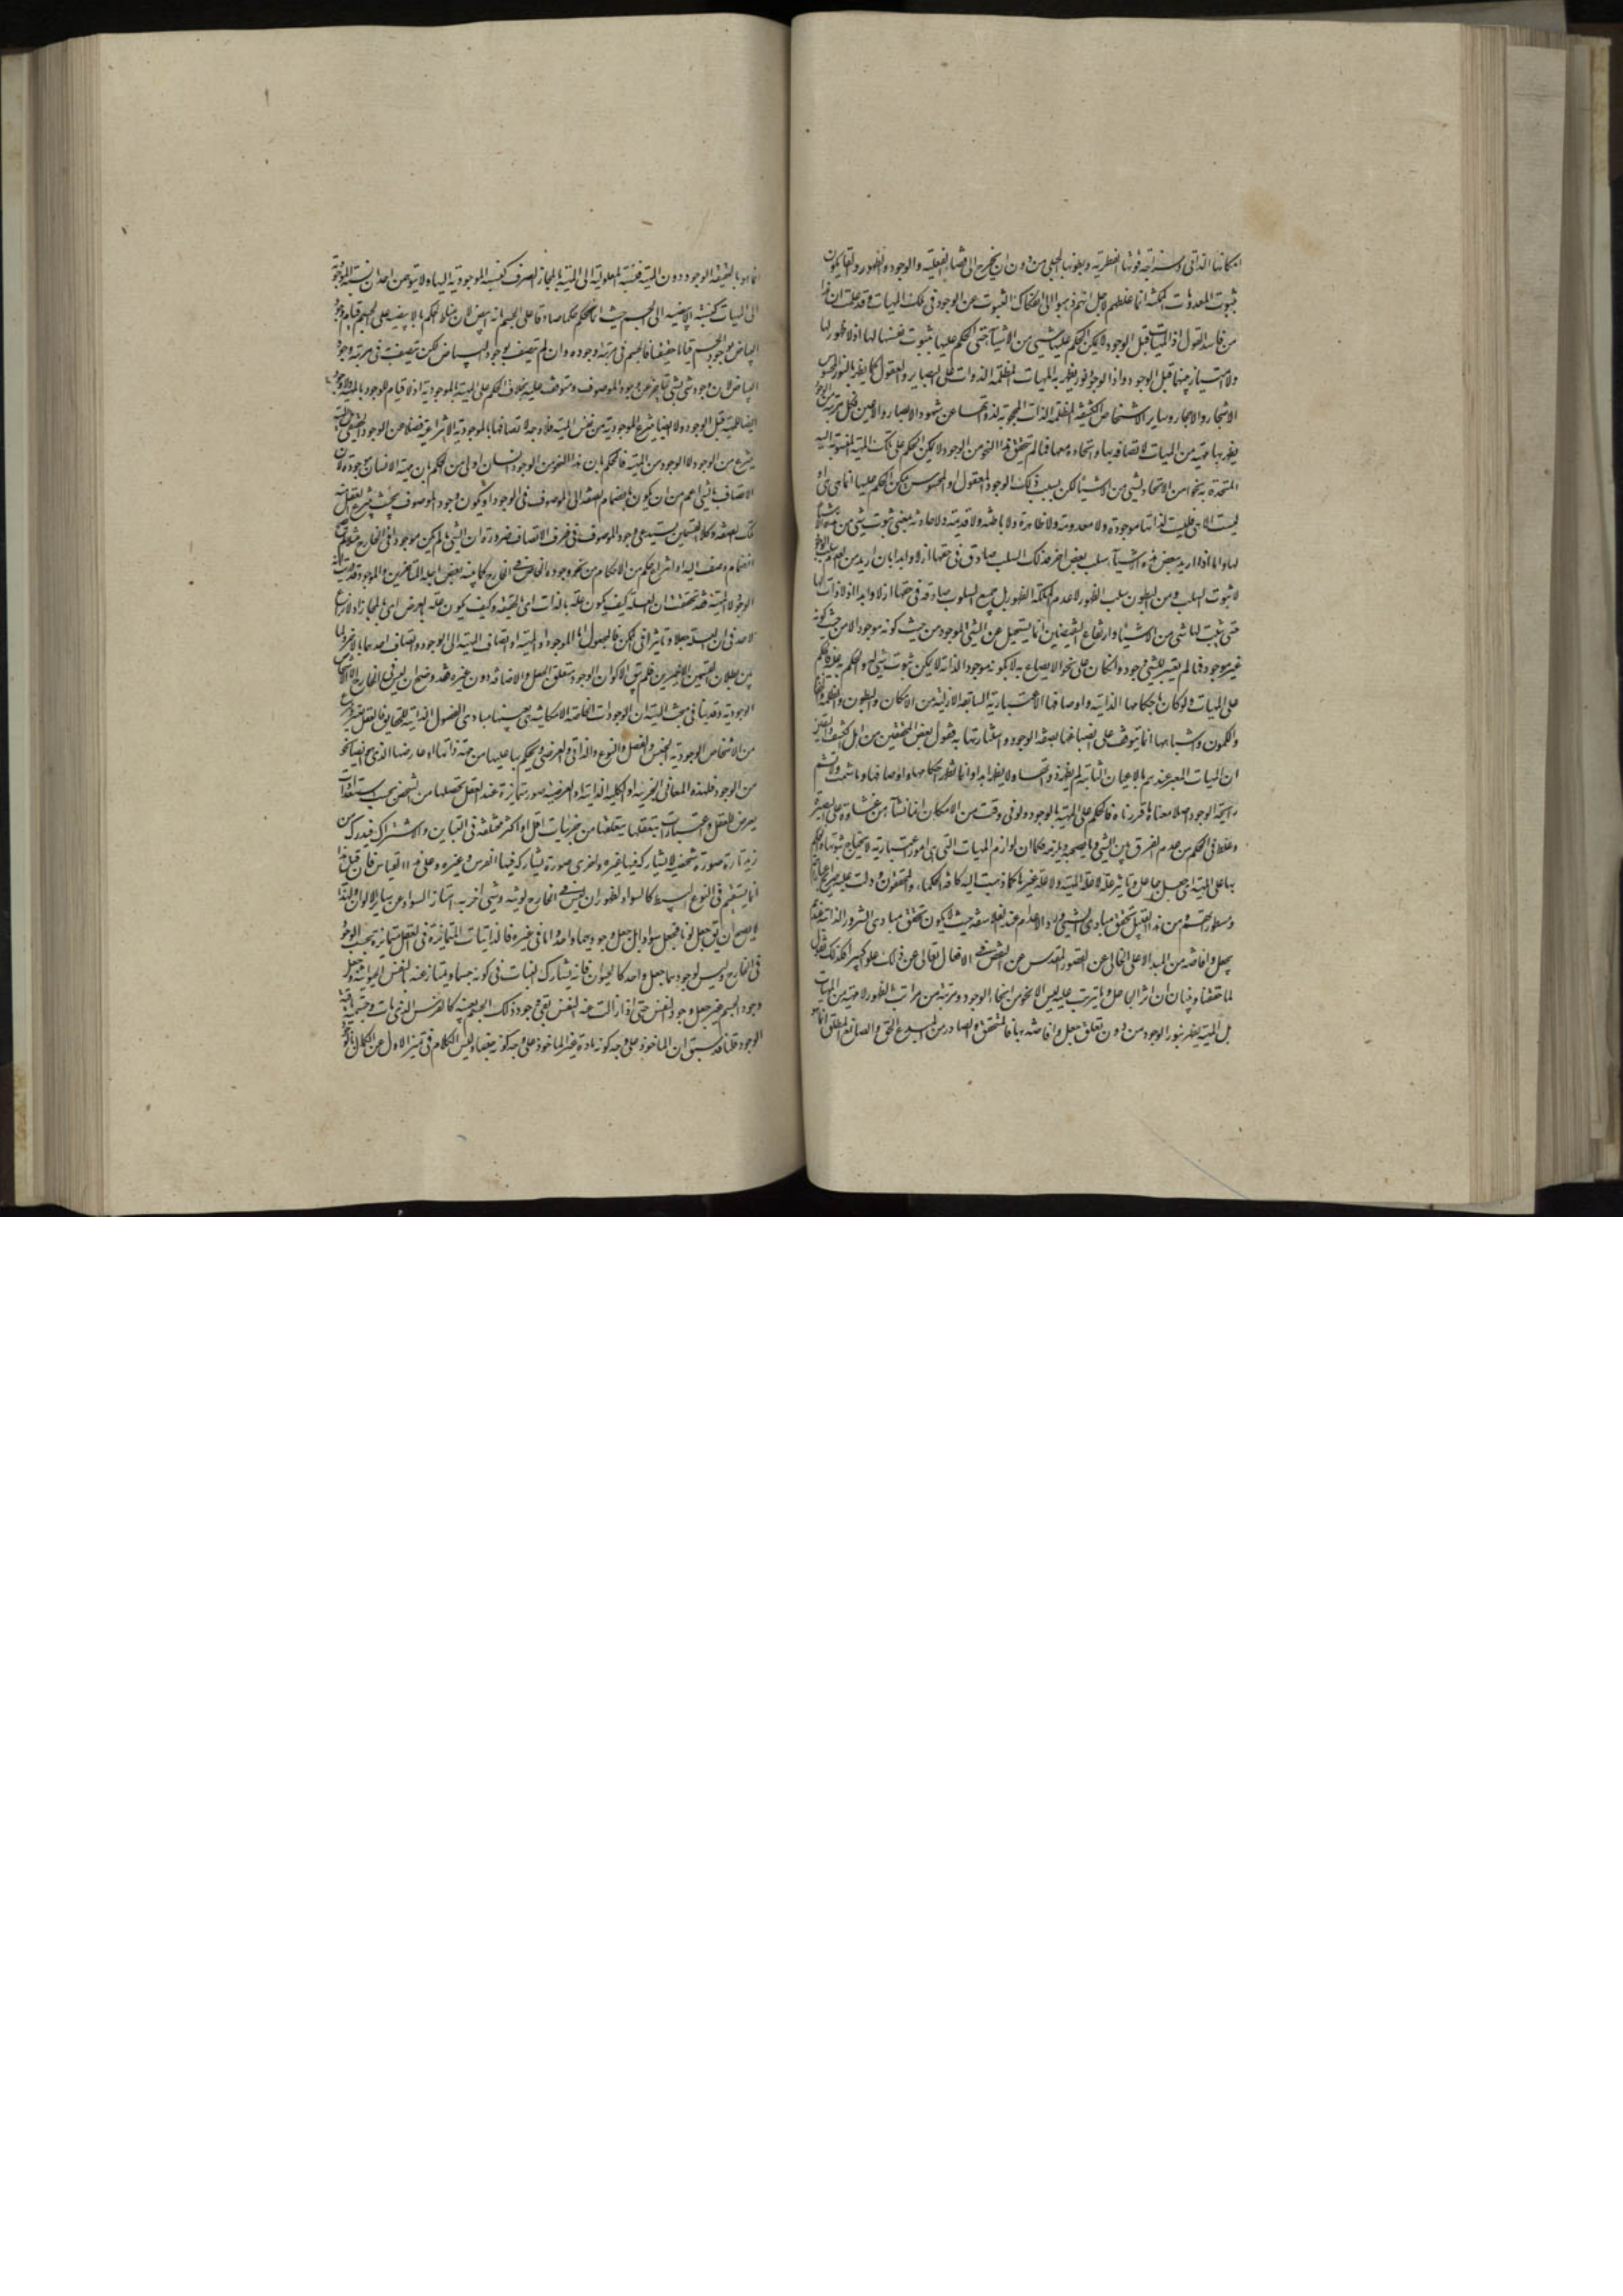 امكانها الذاتى وسذاجة قوتها الفطرية وبطونها الجبلى من دون ان يخرج الى فضاء الفعلية والوجود والظهور والقايلون
بثبوت المعدومات الممكنة انما غلطهم لاجل انهم ذهبوا الى انفكاك الثبوت عن الوجود فى تلك المهيات وقد علمت ان هذا
من فاسد القول اذ المهيات قبل الوجود لا يمكن الحكم عليها بشىء من الاشياء حتى الحكم عليها بثبوت نفسها لها اذ لا ظهور لها
ولا امتياز بينها قبل الوجود واذ الوجود نور يظهر به المهيات المظلمة الذوات على البصاير والعقول كما يظهر بالنور المحسوس
الاشجار والاحجار وساير الاشخاص الكثيفة المظلمة الذات المحجوبة لذواتها عن شهود الابصار والاعين فكل مرتبة من الوجود
يظهر بها مهية من المهيات لاتصافه بها واتحاده معها فما لم يتحقق هذا النحو من الوجود لا يمكن الحكم على تلك المهية المنسوبة اليه
المتحدة به نحوا من الاتحاد بشىء من الاشياء لكن بسبب ذلك الوجود المعقول او المحسوس يمكن الحكم عليها انما هى هى او
ليست الا هى فليست لذاتها موجودة ولا معدومة ولا ظاهرة ولا باطنة ولا قديمة ولا حادثة بمعنى ثبوت شىء من هذه الاشياء
لها واما اذا اريد ببعض هذه الاشياء سلب بعض اخر فذلك السلب صادق فى حقها ازلا وابدا بان اريد من العدم سلب الوجود
لا ثبوت السلب ومن البطون سلب الظهور لا عدم ملكة الظهور بل جميع السلوب صادقة فى حقها ازلا وابدا اذ لا ذات لها
حتى يثبت لها شىء من الاشياء وارتفاع النقيضين انما يستحيل عن الشىء الموجود من حيث كونه موجودا لا من حيث كونه
غير موجود فما لم يعتبر للشىء وجود وان كان على نحو الانصباغ به لا بكونه موجودا لذاته لا يمكن ثبوت شىء له والحكم به عليه فالحكم
على المهيات ولو كان باحكامها الذاتية واوصافها الاعتبارية السابقة الازلية من الامكان والبطون والظلمة والخفا
والكمون واشباهها انما يتوقف على انصباغها بصفة الوجود واستنارتها به فقول بعض المحققين من اهل الكشف واليقين
ان المهيات المعبر عندهم بالاعيان الثابتة لم يظهر ذواتها ولا يظهر ابدا وانما يظهر احكامها واوصافها وما شمت ولا تشم
رايحة الوجود اصلا معناه ما قررناه فالحكم على المهية بالوجود ولو فى وقت من الاوقات انما نشأ من غشاوة على البصر
وغلط فى الحكم من عدم الفرق بين الشىء وما يصحبه ويلزمه فكما ان لوازم المهيات التى هى امور اعتبارية لا يحتاج ثبوتها والحكم
بها على المهية الى جعل جاعل وتاثير علة لا علة المهية ولا علة غيرها كما ذهبت اليه كافة الحكماء والمحققون ودلت عليه صريح عباراتهم
ومسطوراتهم ومن هذا القبيل تحقق مبادى الشرور والاعدام عند الفلاسفة حيث لا يكون تحقق مبادى الشرور الذاتية عندهم
بجعل وافاضة من المبدء الاعلى الخالى عن القصور المقدس عن النقص فى الافعال تعالى عن ذلك علوا كبيرا فكذلك نقول
لما حققنا وبينا ان اثر الجاعل وما يترتب عليه ليس الا نحو من انحاء الوجود ومرتبة من مراتب الظهور لا مهية من المهيات
بل المهية يظهر بنور الوجود من دون تعلق جعل وافاضة بها فالمتحقق والصادر من المبدع الحق والصانع المطلق انما هو
انما هو بالحقيقة الوجود دون المهية فنسبة المعلولية الى المهية بالمجاز الصرف كنسبة الموجودية اليها ولا يتوهمن احد ان نسبة الموجودية
الى المهيات كنسبة الابيضية الى الجسم حيث انا نحكم حكما صادقا على الجسم بانه ابيض لان مناط الحكم بالابيضية على الجسم قيام وجود
البياض بوجود الجسم قياما حقيقيا فالجسم فى مرتبة وجوده وان لم يتصف بوجود البياض لكن يتصف به فى مرتبة وجود
البياض لان وجود شىء لشىء متاخر عن وجود الموصوف ومتوقف عليه بخلاف الحكم على المهية بالموجودية اذ لا قيام للوجود بالمهية ولا وجود
ايضا للمهية قبل الوجود ولا ايضا ينتزع الموجودية من نفس المهية فلا وجه لاتصافها بالموجودية الانتزاعية فضلا عن الوجود الحقيقى
ينتزع من الوجود لا الوجود من المهية فالحكم بان هذا النحو من الوجود انسان اولى من الحكم بان مهية الانسان موجودة لان
الاتصاف بالشىء اعم من ان يكون بانضمام الصفة الى الموصوف فى الوجود او يكون وجود الموصوف بحيث ينتزع العقل منه
تلك الصفة وكلا القسمين يستدعى وجود الموصوف فى ظرف الاتصاف ضرورة ان الشىء ما لم يكن موجودا فى الخارج مثلا لم يصح
انضمام وصف اليه او انتزاع حكم من الاحكام من نحو وجوده الخاص فى الخارج كما بينه بعض اجلة المتاخرين والموجود قد ثبت انه
الوجود لا المهية فقد تحقق ان العلة كيف يكون علة بالذات اى بالحقيقة وكيف يكون علة بالعرض اى بالمجاز ولا نزاع
لاحد فى ان للعلة جعلا وتاثيرا فى الممكن فالمجعول اما الوجود او المهية او اتصاف المهية الى الوجود واتصاف احدهما بالاخر ولما
بين بطلان القسمين الاخيرين فلم يبق الا كون الوجود متعلق الجعل والافاضة دون غيره فقد وضح ان ليس فى الخارج الا الاشخاص
الوجودية وقد بينا فى مبحث المهية ان الوجودات الخاصة الامكانية هى بعينها مبادى الفصول الذاتية للحقايق فالعقل يعتبر وينتزع
من الاشخاص الوجودية الجنس والفصل والنوع والذاتى والعرضى ويحكم بها عليها من جهة ذاتها او عارضها الذى هو ايضا نحو
من الوجود فلهذه المعانى الجزئية او الكلية الذاتية او العرضية صور متمايزة عند العقل يحصلها من الشخص بحسب استعدادات
يعرض للعقل واعتبارات يتعقلها يتعلقها من جزئيات اقل او اكثر مختلفة فى التباين والاشتراك فيدرك من
زيد تارة صورة شخصية لا يشاركه فيها غيره واخرى صورة يشاركه فيها الفرس وغيره وعلى هذا القياس فان قيل هذا
انما يستقيم فى النوع البسيط كالسواد لظهور ان ليس فى الخارج لونية وشىء اخر به امتاز السواد عن ساير الالوان ولهذا
لا يصح ان يق جعل لونا فجعل سوادا بل جعل وجوديهما واحد واما فى غيره فالذاتيات المتمايزة فى العقل متمايزة بحسب الوجود
فى الخارج وليس لوجودهما جعل واحد كالحيوان فانه يشارك النبات فى كونه جسما ويمتاز عنه بالنفس الحيوانية وجعل
وجود الجسم غير جعل وجود النفس حتى اذا زالت عنه النفس بقى وجود ذلك الجسم بعينه كالفرس الذى مات وجسميته باقية
الوجود قلنا قد سبق ان الماخوذ على وجه كونه مادة غير الماخوذ على وجه كونه جنسا وليس الكلام فى تميز الاول عن الكل بالوجود